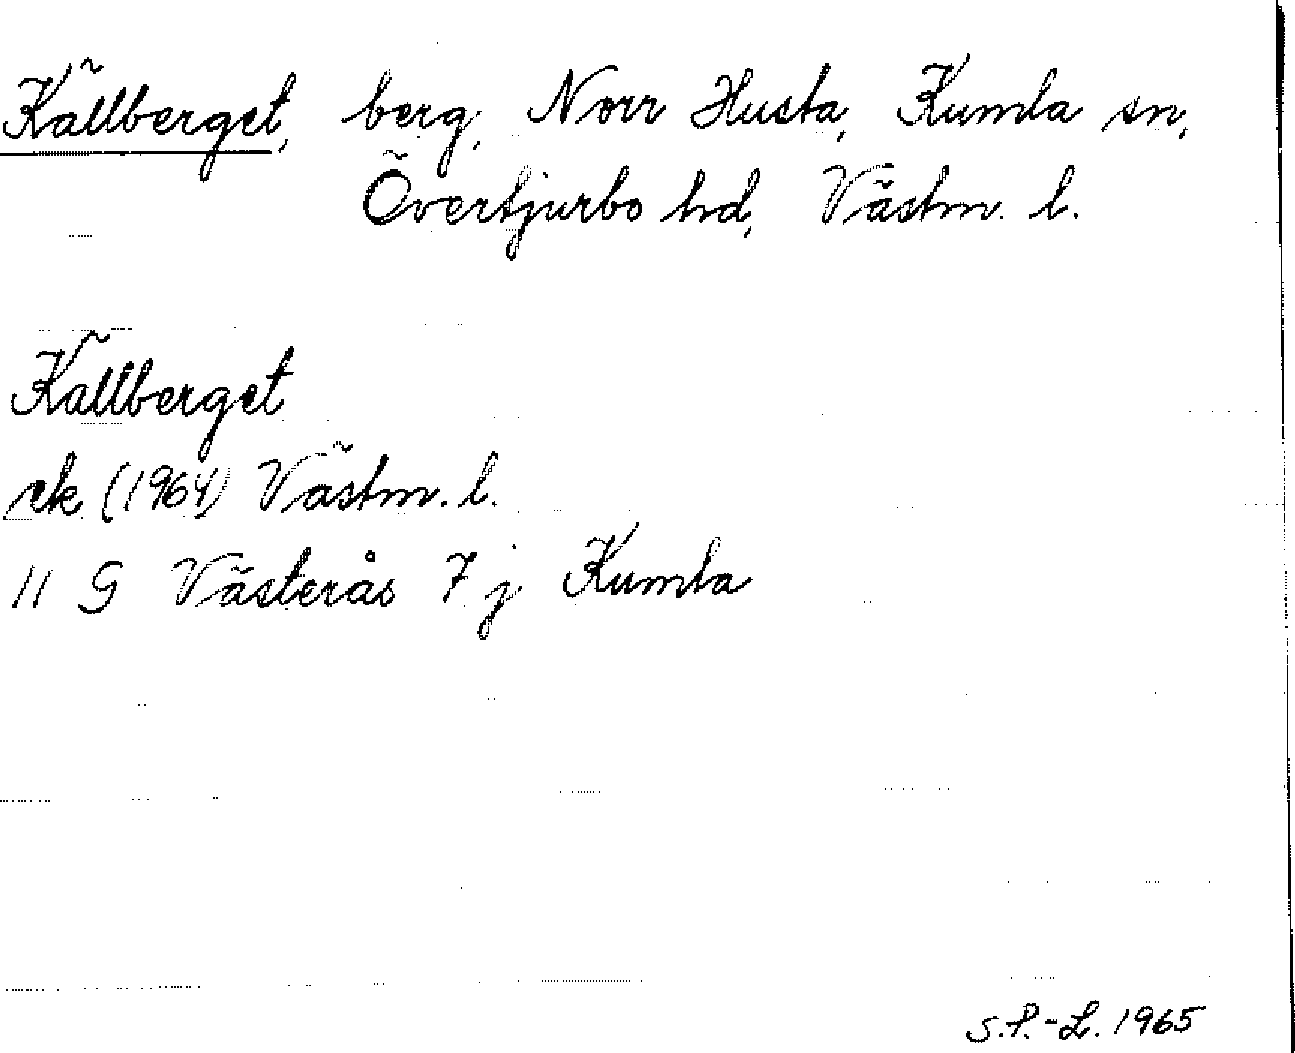 Källberget, berg, Norr Husta, Kumla sn,
Övertjurbo hd, Västm. l.
Källberget
ek (1964) Västm. l.
11 G Västerås 7 j Kumla
S.P.-L. 1965